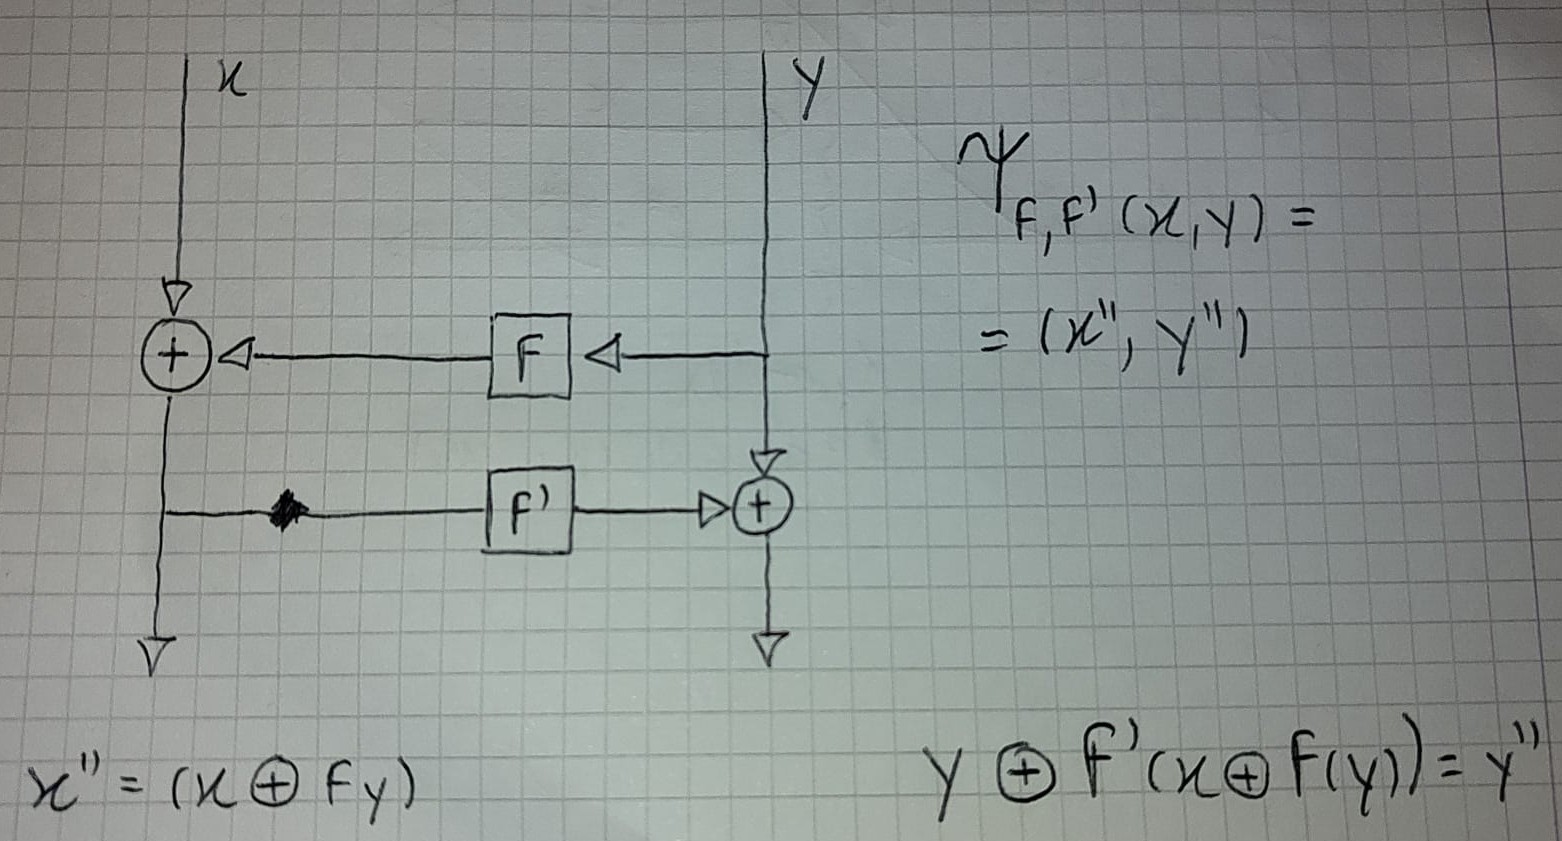 x
y
Ψ
F,F' (x,y) =
= (x", y")
+
F
F'
+
x" = (x ⊕ Fy)
y ⊕ F'(x ⊕ F(y)) = y"